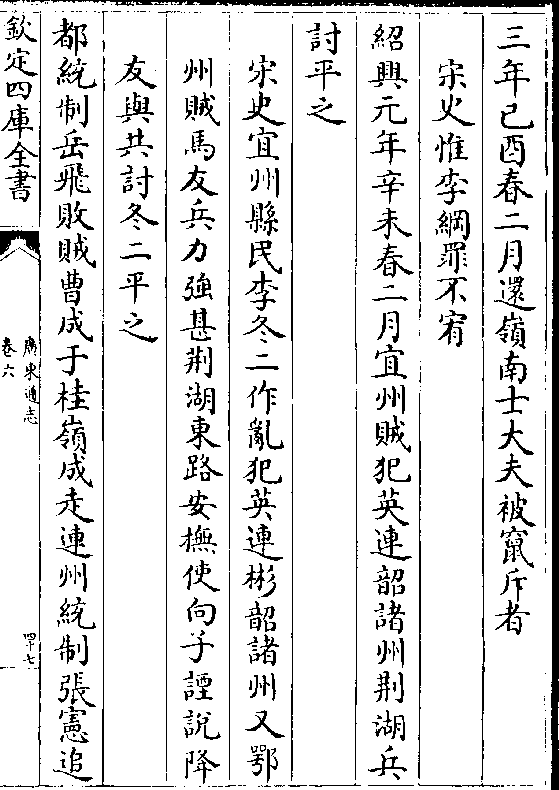 三年己酉春二月還嶺南士大夫被竄斥者
宋史惟李綱罪不宥
紹興元年辛未春二月宜州賊犯英連韶諸州荆湖兵
討平之
宋史宜州縣民李冬二作亂犯英連彬韶諸州又鄂
州賊馬友兵力強甚荆湖東路安撫使向子諲説降
友與共討冬二平之
都統制岳飛敗賊曹成于桂嶺成走連州統制張憲追
欽定四庫全書
廣東通志
卷六
四十七